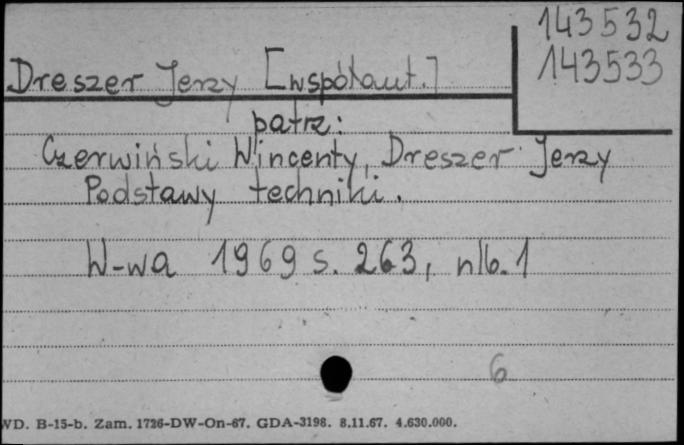 143532
143533
Dreszer Jerzy [współaut.]
patrz:
Czerwiński Wincenty, Dreszer Jerzy
Podstawy techniki.
W-wa 1969 s. 263, nlb. 1
6
WD. B-15-b. Zam. 1726-DW-On-67. GDA-3198. 8.11.67. 4.630.000.